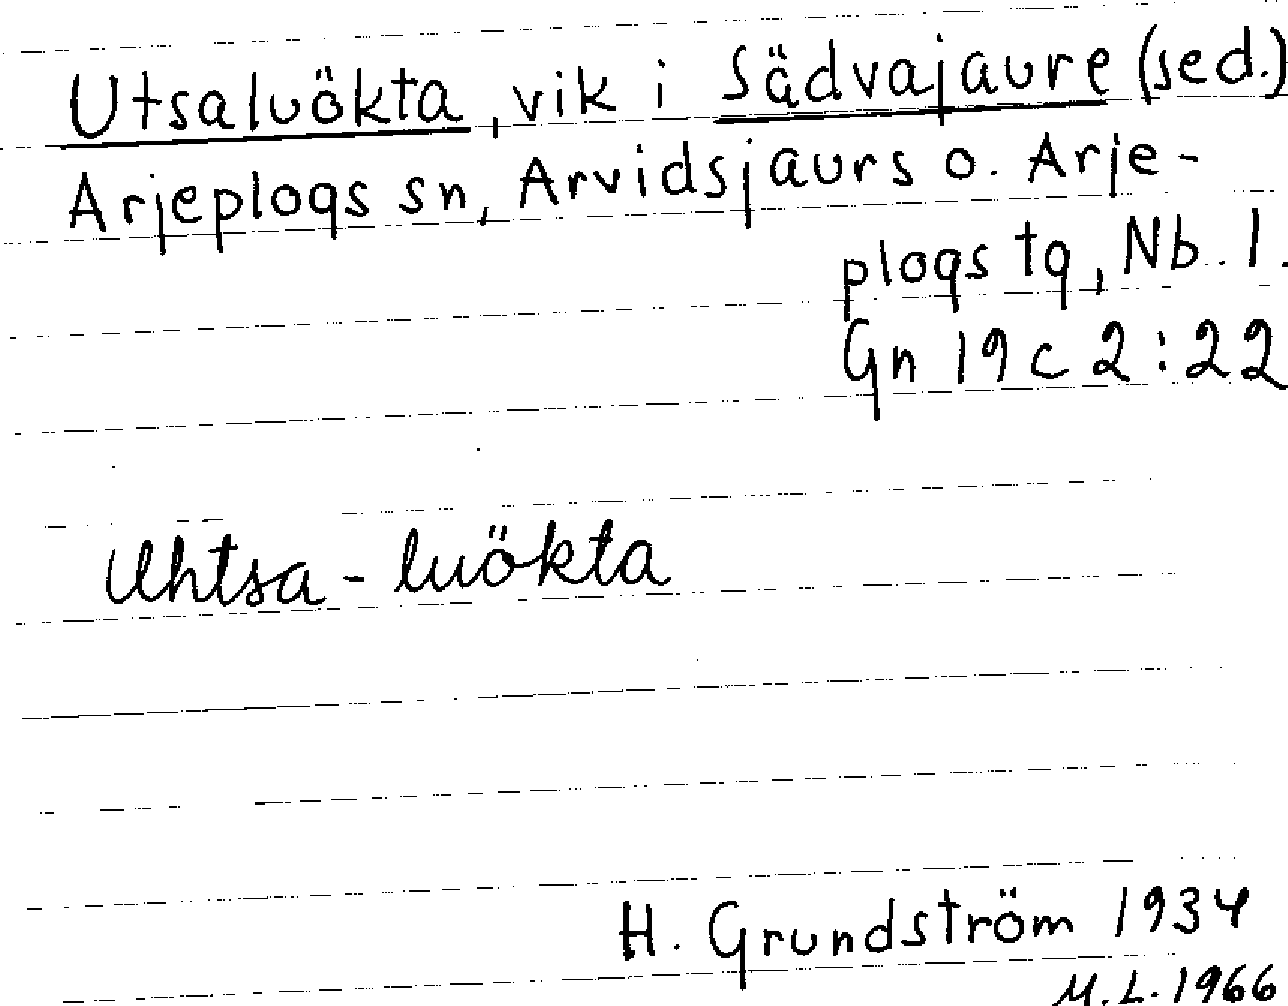 Utsaluökta, vik i Sädvajaure (sed.)
Arjeplogs sn, Arvidsjaurs o. Arje-
plogs tg, Nb. l.
Gn 19 c 2:22
Uhtsa-luökta
H. Grundström 1934
M.L. 1966